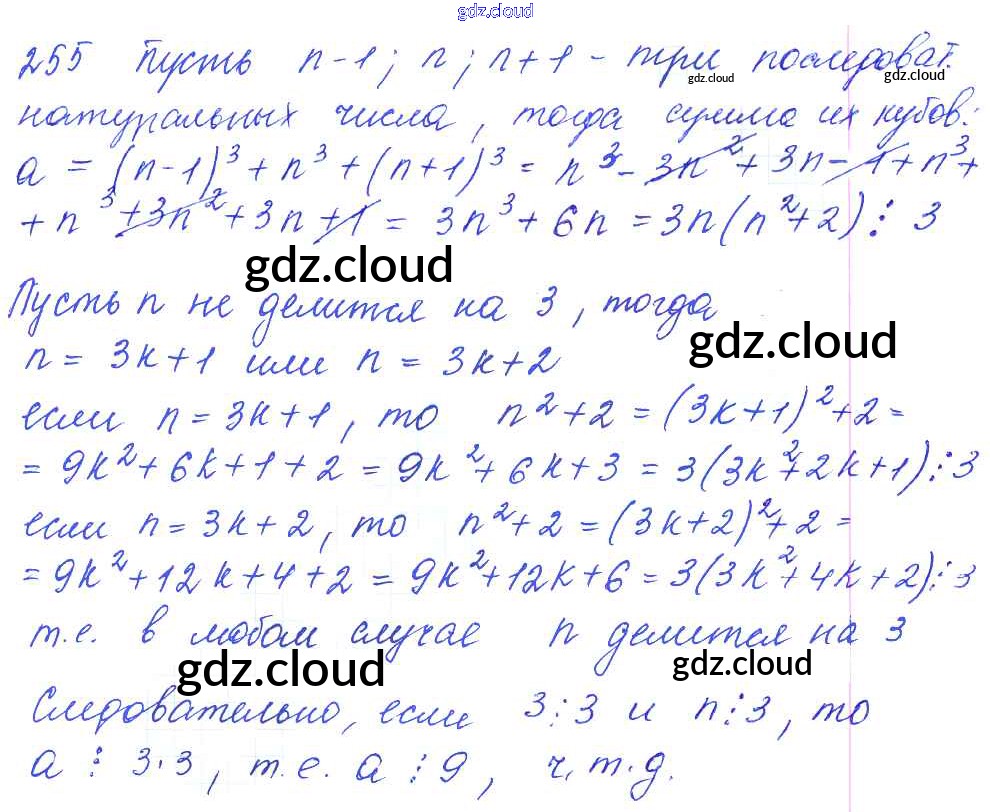 gdz.cloud
255 Пусть n-1; n; n+1 - три последоват.
gdz.cloud gdz.cloud
натуральных числа, тогда сумма их кубов:
a = (n-1)³ + n³ + (n+1)³ = n³ - 3n² + 3n - 1 + n³ +
+ n³ + 3n² + 3n + 1 = 3n³ + 6n = 3n(n²+2) ⋮ 3
gdz.cloud
Пусть n не делится на 3, тогда
gdz.cloud
n = 3k+1 или n = 3k+2
если n = 3k+1, то n²+2 = (3k+1)²+2 =
= 9k²+6k+1+2 = 9k²+6k+3 = 3(3k²+2k+1)⋮3
если n = 3k+2, то n²+2 = (3k+2)²+2 =
= 9k²+12k+4+2 = 9k²+12k+6 = 3(3k²+4k+2)⋮3
т.е. в любом случае n делится на 3
gdz.cloud gdz.cloud
Следовательно, если 3⋮3 и n⋮3, то
a ⋮ 3·3, т.е. a ⋮ 9, ч.т.д.